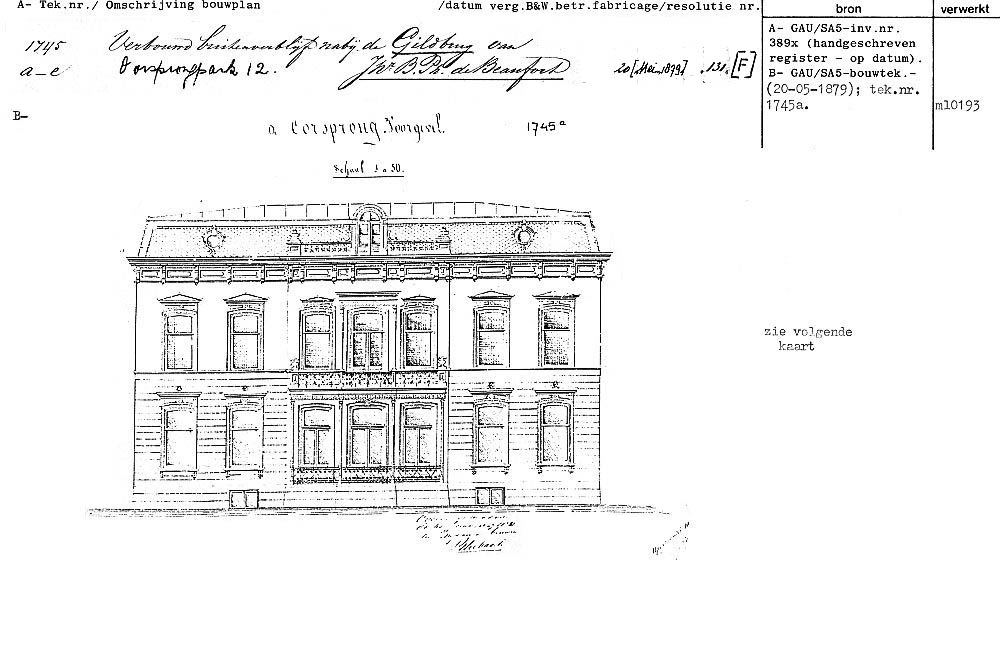 A- Tek.nr./ Omschrijving bouwplan /datum verg.B&W.betr.fabricage/resolutie nr.
bron
verwerkt
1745 Verbouw buitenverblijf nabij de Gildbrug van
a-e Oorsprongpark 12. Jhr. B. Ph. de Beaufort 20 [Mei 1879] .131. [F]
A- GAU/SA5-inv.nr.
389x (handgeschreven
register - op datum).
B- GAU/SA5-bouwtek.-
(20-05-1879); tek.nr.
1745a.
m10193
B-
a Oorsprong. Voorgevel. 1745a
Schaal 1 a 50.
zie volgende
kaart